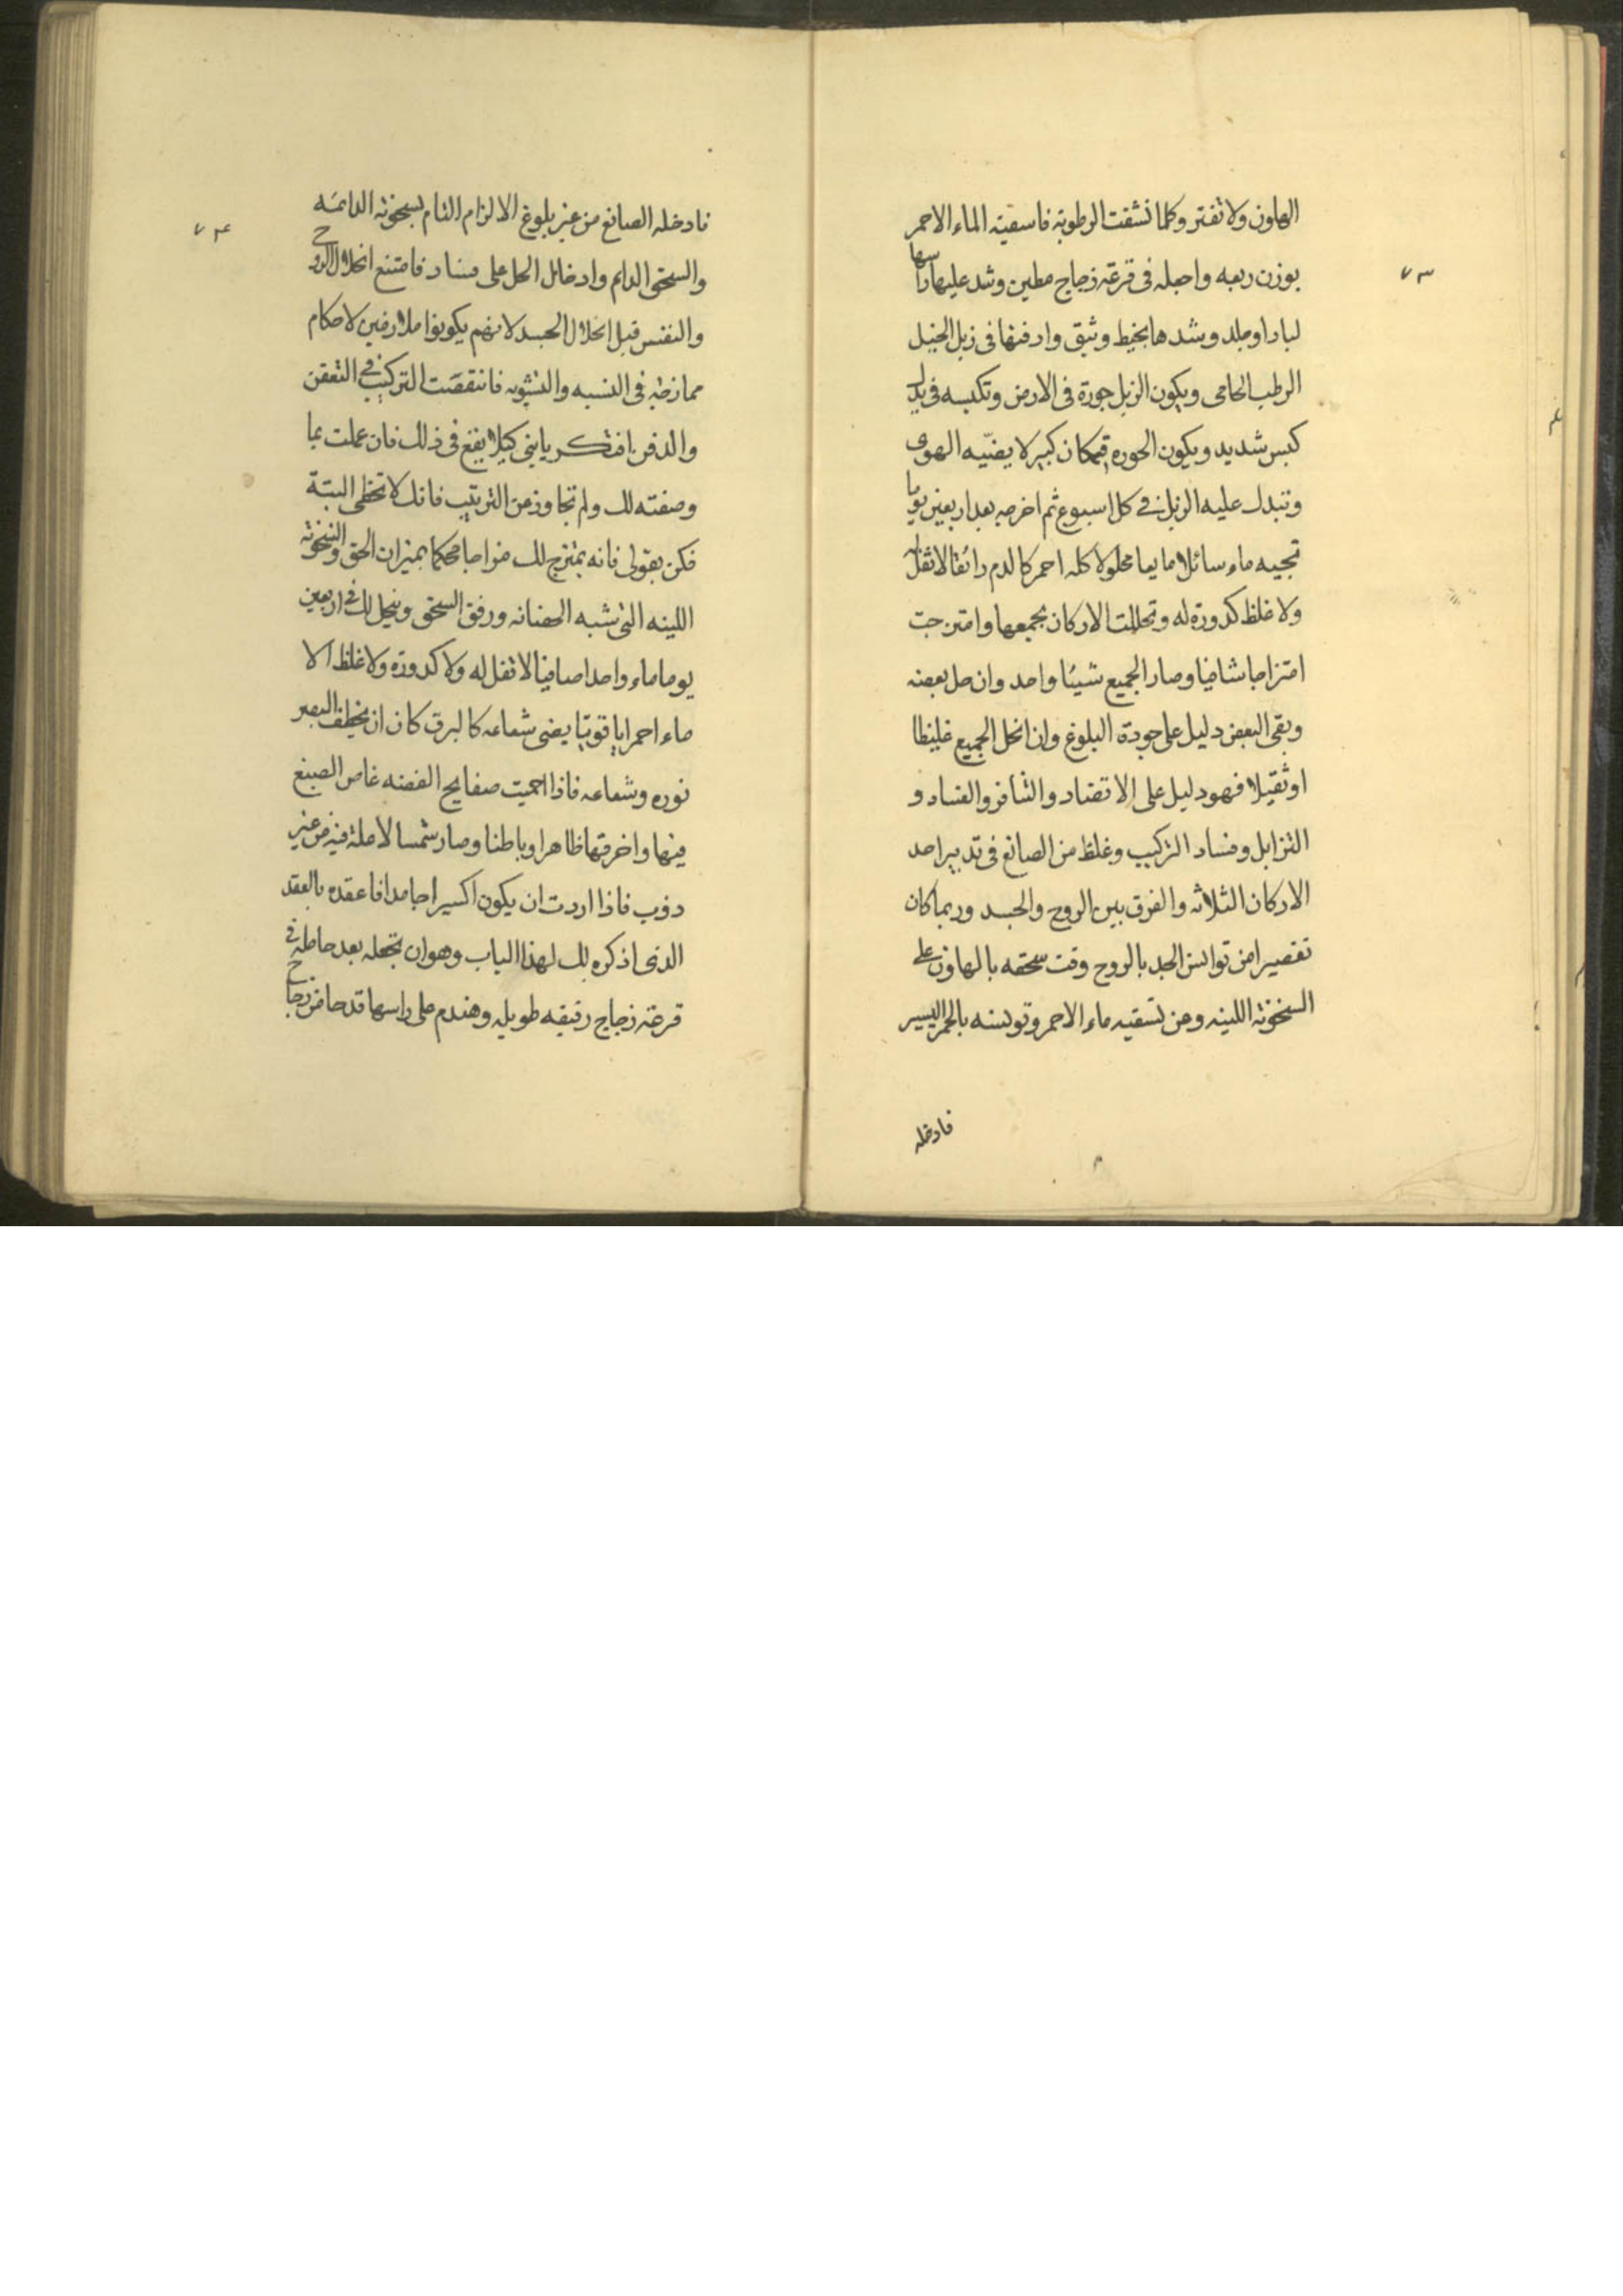 ٧٣
الهاون ولا تفتر وكلما نشفت الرطوبة فاسقيه الماء الاحمر
بوزن ربعه واجعله فى قرعة زجاج مطين وشد عليها راسها
لبادا وجلد وشدها بخيط وثيق وادفنها فى زبل الخيل
الرطب الحامى ويكون الزبل جورة فى الارض وتكبسه فى
كبس شديد ويكون الحوره بمكان كبير لا يضيّه الهوى
وتبدل عليه الزبل فى كل اسبوع ثم اخرجه بعد اربعين يوما
تجيه ماء سائلا مايعا محلولا كله احمر كالدم رائقا لا ثقل له
ولا غلظ كدورة له وتحللت الاركان بجمعها وامتزجت
امتزاجا شافيا وصار الجميع شيئا واحد وان حل بعضه
وبقى البعض دليل على جودة البلوغ وان انحل الجميع غليظا
او ثقيلا فهو دليل على الاتضاد والتنافر والفساد و
التزابل وفساد التركيب وغلظ من الصانع فى تدبير احد
الاركان الثلاثه والفرق بين الروح والجسد وربما كان
تقصيرا من توانس الجسد بالروح وقت سحقه بالهاون على
السخونة اللينه ومن تسقيه ماء الاحمر وتونسه بالجمر اليسير
فادخله
٧٤
فادخله الصانع من غير بلوغ الالزام التام بسخونة الدائمه
والسحق الدايم وادخال الحل على فساد فامتنع انحلال الروح
والنفس قبل انحلال الجسد لانهم يكونوا ملازمين لاحكام
ممازجة فى النسبه والتشويه فانتقضت التركيب فى التعفن
والدفن افتكر يابنى كيلا يقع فى ذلك فان عملت بما
وصفته لك ولم تجاوز من الترتيب فانك لا تخطى البتة
فكن بقولى فانه يمتزج لك مزاجا محكما بميزان الحق والسخونة
اللينه التى شبه الحضانه ورفق السحق وينحل لك فى اربعين
يوما ماء واحدا صافيا لا ثقل له ولا كدورة ولا غلظ الا
ماء احمرا ياقوتيا يضى شعاعه كالبرق كان ان يخطف البصر
نوره وشعاعه فاذا احميت صفايح الفضه غاص الصبغ
فيها واخرقها ظاهرا وباطنا وصار شمسا لا علة فيه من غير
دؤب فاذا اردت ان يكون اكسيرا جامدا فاعقده بالعقد
الذى اذكره لك لهذا الباب وهو ان تجعله بعد حاطه فى
قرعة زجاج رقيقه طويله وهندم على راسها قدحا من زجاج